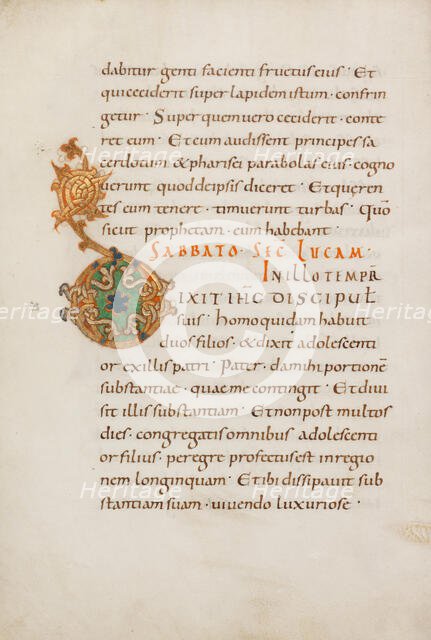 dabitur genti facienti fructus eius · Et
qui ceciderit super lapidem istum · confrin
getur · Super quem vero ceciderit · conte
ret eum · Et cum audissent principes sa
cerdotum & pharisei parabolas eius · cogno
verunt quod de ipsis diceret · Et quęren
tes eum tenere · timuerunt turbas · Quō
sicut prophetam · eum habebant ·
SABBATO · SEC LUCAM ·
IN ILLO TEMPR
DIXIT IHC DISCIPUL
suis · Homo quidam habuit
duos filios · & dixit adolescenti
or ex illis patri · Pater · da mihi portionē
substantiae · quae me contingit · Et divi
sit illis substantiam · Et non post multos
dies · congregatis omnibus adolescenti
or filius · peregre profectus est in regio
nem longinquam · Et ibi dissipavit sub
stantiam suam · vivendo luxuriose ·
Heritage Images